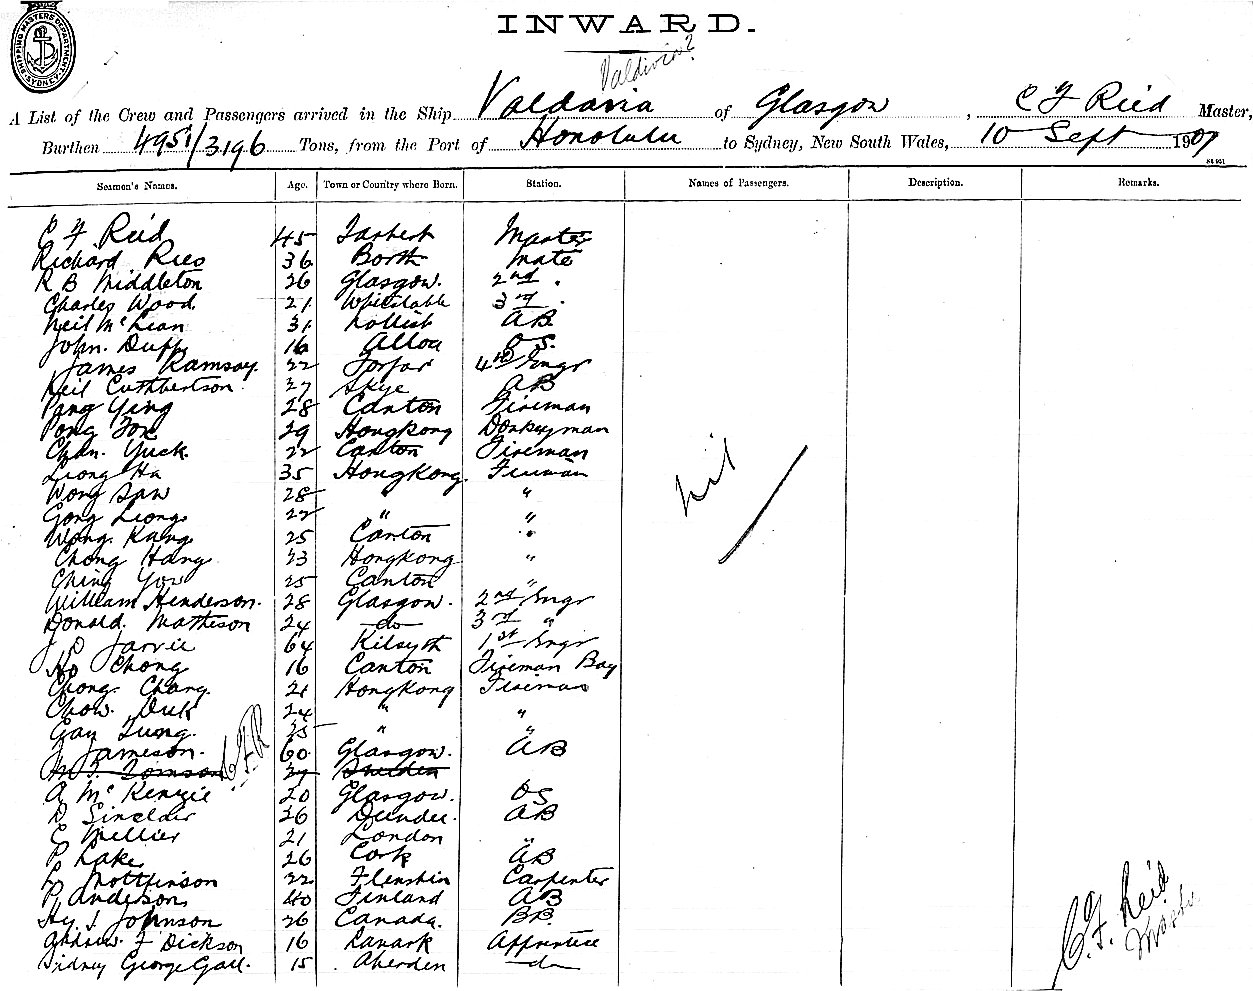 SHIPPING MASTERS DEPARTMENT SYDNEY
INWARD.
Valdivia?
A List of the Crew and Passengers arrived in the Ship Valdavia of Glasgow, C F Reid Master,
Burthen 4951/3196 Tons, from the Port of Honolulu to Sydney, New South Wales, 10 Sept 1907
Seamen's Names. Age. Town or Country where Born. Station. Names of Passengers. Description. Remarks.
C F Reid 45 Tarbert Master
Richard Rees 36 Borth Mate
R B Middleton 26 Glasgow. 2nd .
Charles Wood 21 Whitstable 3rd .
Neil McLean 31 AB
John. Duffy 16 Alloa OS.
James Ramsay. 22 Forfar 4th Engr
Neil Cuthbertson. 27 Skye AB
Pang Ying 28 Canton Fireman
Pong Fon 29 Hongkong Donkeyman
Chan. Yuck. 22 Canton Fireman
Leong Ha 35 Hongkong. Fireman
Wong San 28 " "
Gong Leong 22 " "
Wong. Kang 25 Canton "
Chong Hang 23 Hongkong "
Ching Yow 25 Canton "
William Henderson. 28 Glasgow. 2nd Engr
Donald. Matheson 24 do 3rd "
J D Jarvie 64 Kilsyth 1st Engr
Ho Chong 16 Canton Fireman Boy
Chong. Chang. 21 Hongkong Fireman
Chow. Duk 24 " "
Gay Lung. 25 " "
J Jameson. 60 Glasgow. AB
Tomson 27 Sweden
CFR
A McKenzie 20 Glasgow. OS
D Sinclair 26 Dundee. AB
C Mellier 21 London "
P Lake 26 Cork AB
22 Carpenter
P. Anderson 40 Finland AB
Hy J Johnson 26 Canada. BB.
Andrew. F Dickson 16 Lanark Apprentice
Sidney George Gall. 15 Aberdeen do
nil
C. F. Reid
Master